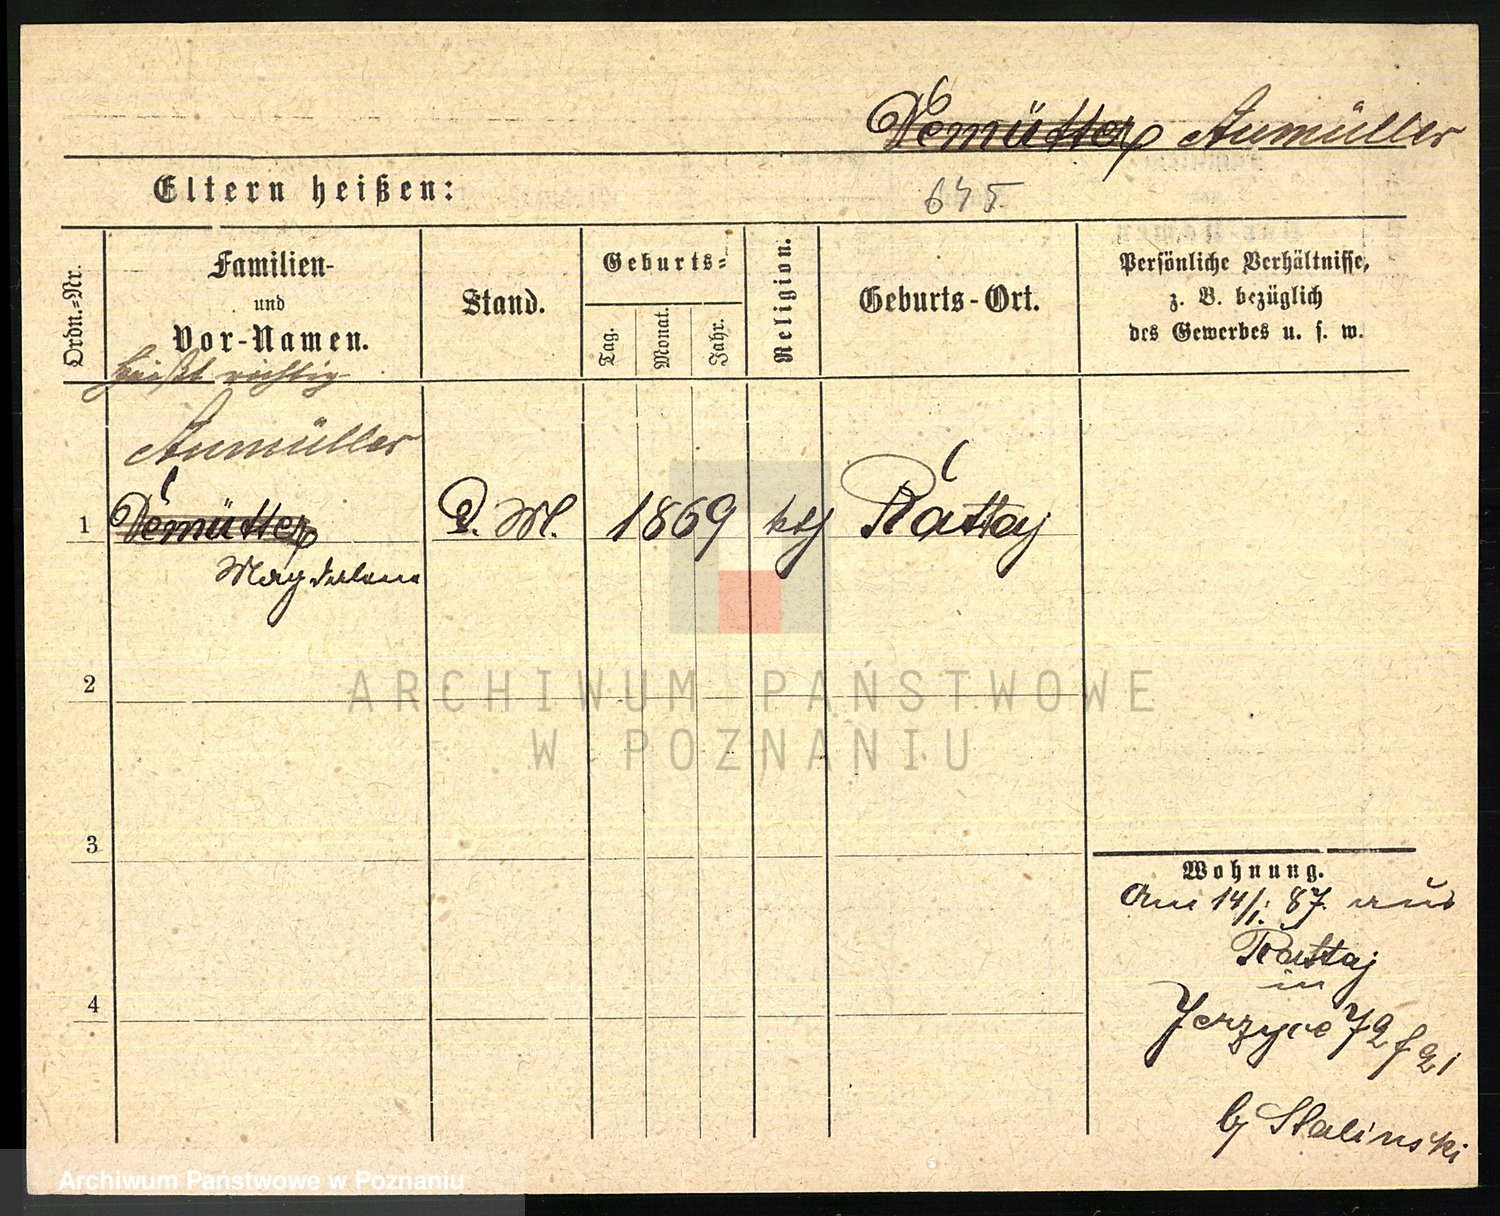 Demütter Aumüller
Eltern heißen:
645
Ordn.-Nr.
Familien-
und
Vor-Namen.
Stand.
Geburts-
Tag.
Monat.
Jahr.
Religion.
Geburts-Ort.
Persönliche Verhältnisse,
z. B. bezüglich
des Gewerbes u. s. w.
heißt richtig
Aumüller
1 Demütter D. M. 1869 kth Rattaj
Magdalena
2
3
4
Wohnung.
Am 14/1. 87. aus
Rattaj
in
Jerzyce 72
by Stalinski
ARCHIWUM PAŃSTWOWE
W POZNANIU
Archiwum Państwowe w Poznaniu